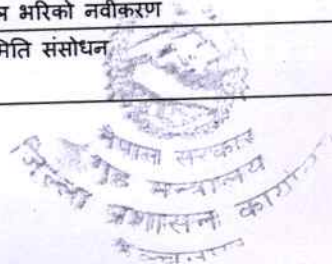 भरिको नवीकरण
मिति संसोधन
नेपाल सरकार
गृह मन्त्रालय
जिल्ला प्रशासन